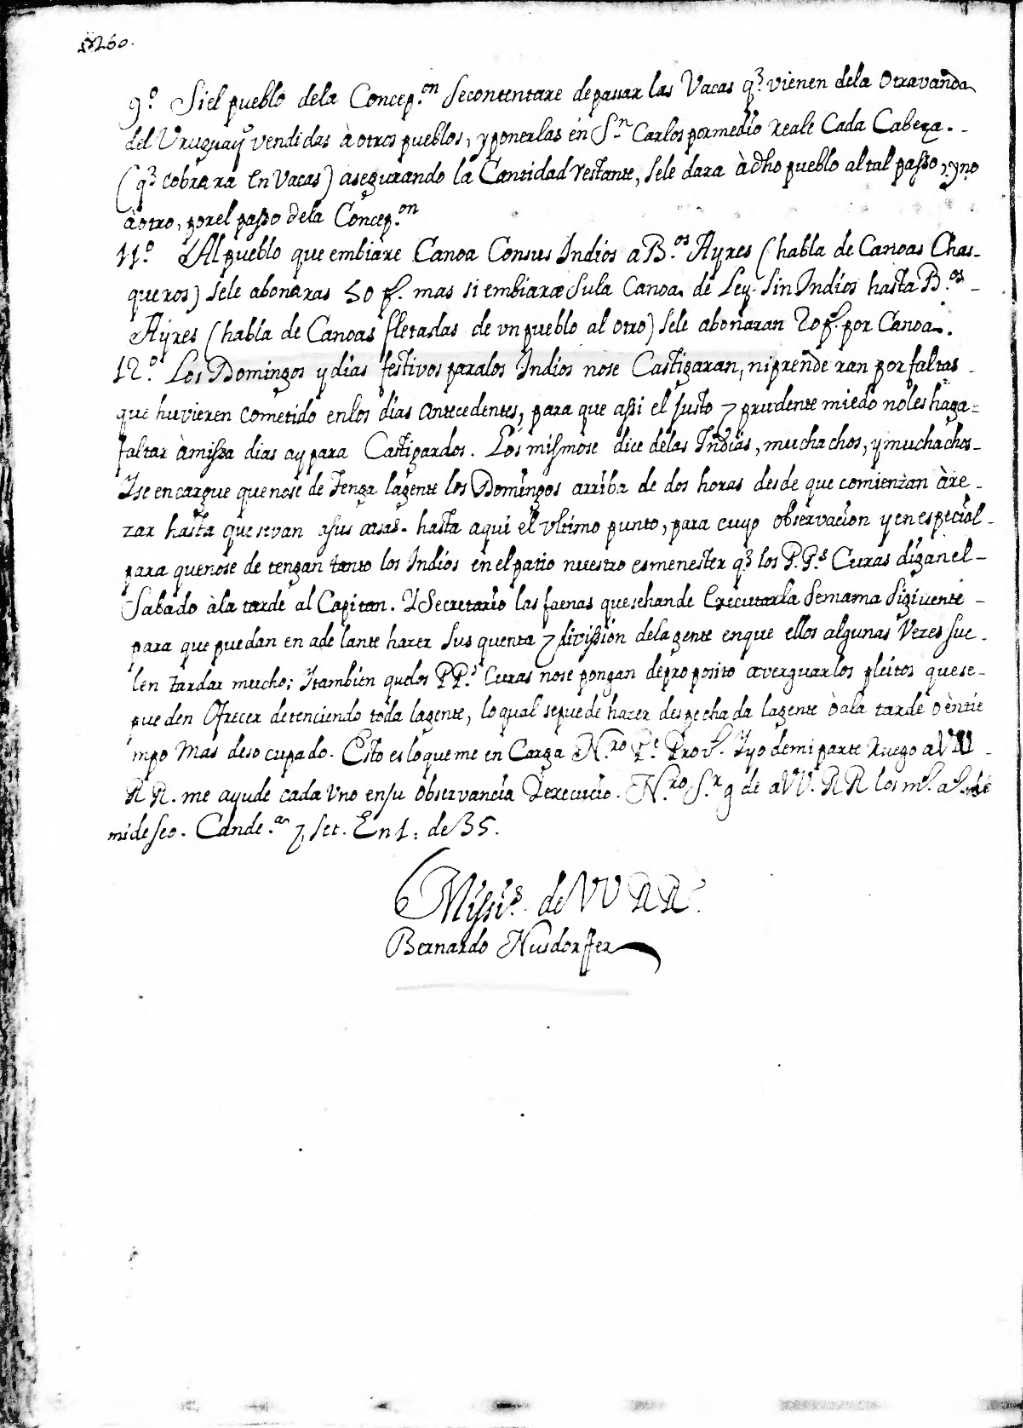 260.
9.º Si el pueblo dela Concep.on Secontentare depasar las Vacas q.e vienen dela Otravanda
del Uruguay vendidas à otros pueblos, y ponerlas en S.n Carlos por medio reale Cada Cabeza. -
(q.e cobrara En Vacas) asegurando la Cantidad restante, sele dara à dho pueblo al tal passo, y no
à otro, por el passo dela Concep.on
11.º Al pueblo que embiare Canoa Consus Indios a B.os Ayres (habla de Canoas Chas-
queros) sele abonaras 50 p.s mas si embiare sula Canoa de Ley Sin Indios hasta B.os -
Ayres (habla de Canoas fletadas de un pueblo al otro) sele abonaran 20 p.s por Canoa.
12.º Los Domingos y dias festivos paralos Indios nose Castigaran, ni prenderan por faltas -
que huvieren cometido enlos dias antecedentes, para que assi el justo y prudente miedo noles haga=
faltar à missa dias ay para Castigardos. Lo mismose dice delas Indias, muchachos, y muchachas-
Yse encargue quenose detenga lagente los Domingos arriba de dos horas desde que comienzan à re-
zar hasta que sevan asus casas- hasta aqui el ultimo punto, para cuyo observacion y en especial-
para quenose detengan tanto los Indios enelpatio nuestro esmenester q.e los P.P.s Curas digan el-
Sabado àla tarde al Capitan. Y Secretario las faenas quesehande Executarla Semama Siguente -
para que puedan en adelante hazer sus quenta y division dela gente enque ellos algunas Vezes sue-
len tardar mucho; Itambien quelos PP.s Curas nose pongan deproposito averguarlos pleitos quese-
pueden Ofrecer deteniendo toda lagente, loqual sepuede hazer despechada lagente ò ala tarde ò entie
mpo mas desocupado. Esto esloque me en Carga N.ro P.e Prov.l Yyo demi parte ruego a VV -
RR. me ayude cada Uno ensu observancia Yexecucio. N.ro S.r g de a VV. RR los m.s a.s de
mideseo. Cande.a y Set. En 1. de 35.
Miss.s de VV RR.
Bernardo Nusdorffer